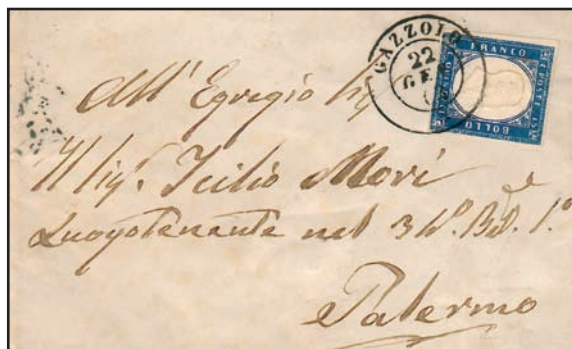 GAZZOLO
22
GE
FRANCO
POSTE
BOLLO
All' Egregio Sig
Il Sig. Icilio Mori
Luogotenante nel
Palermo